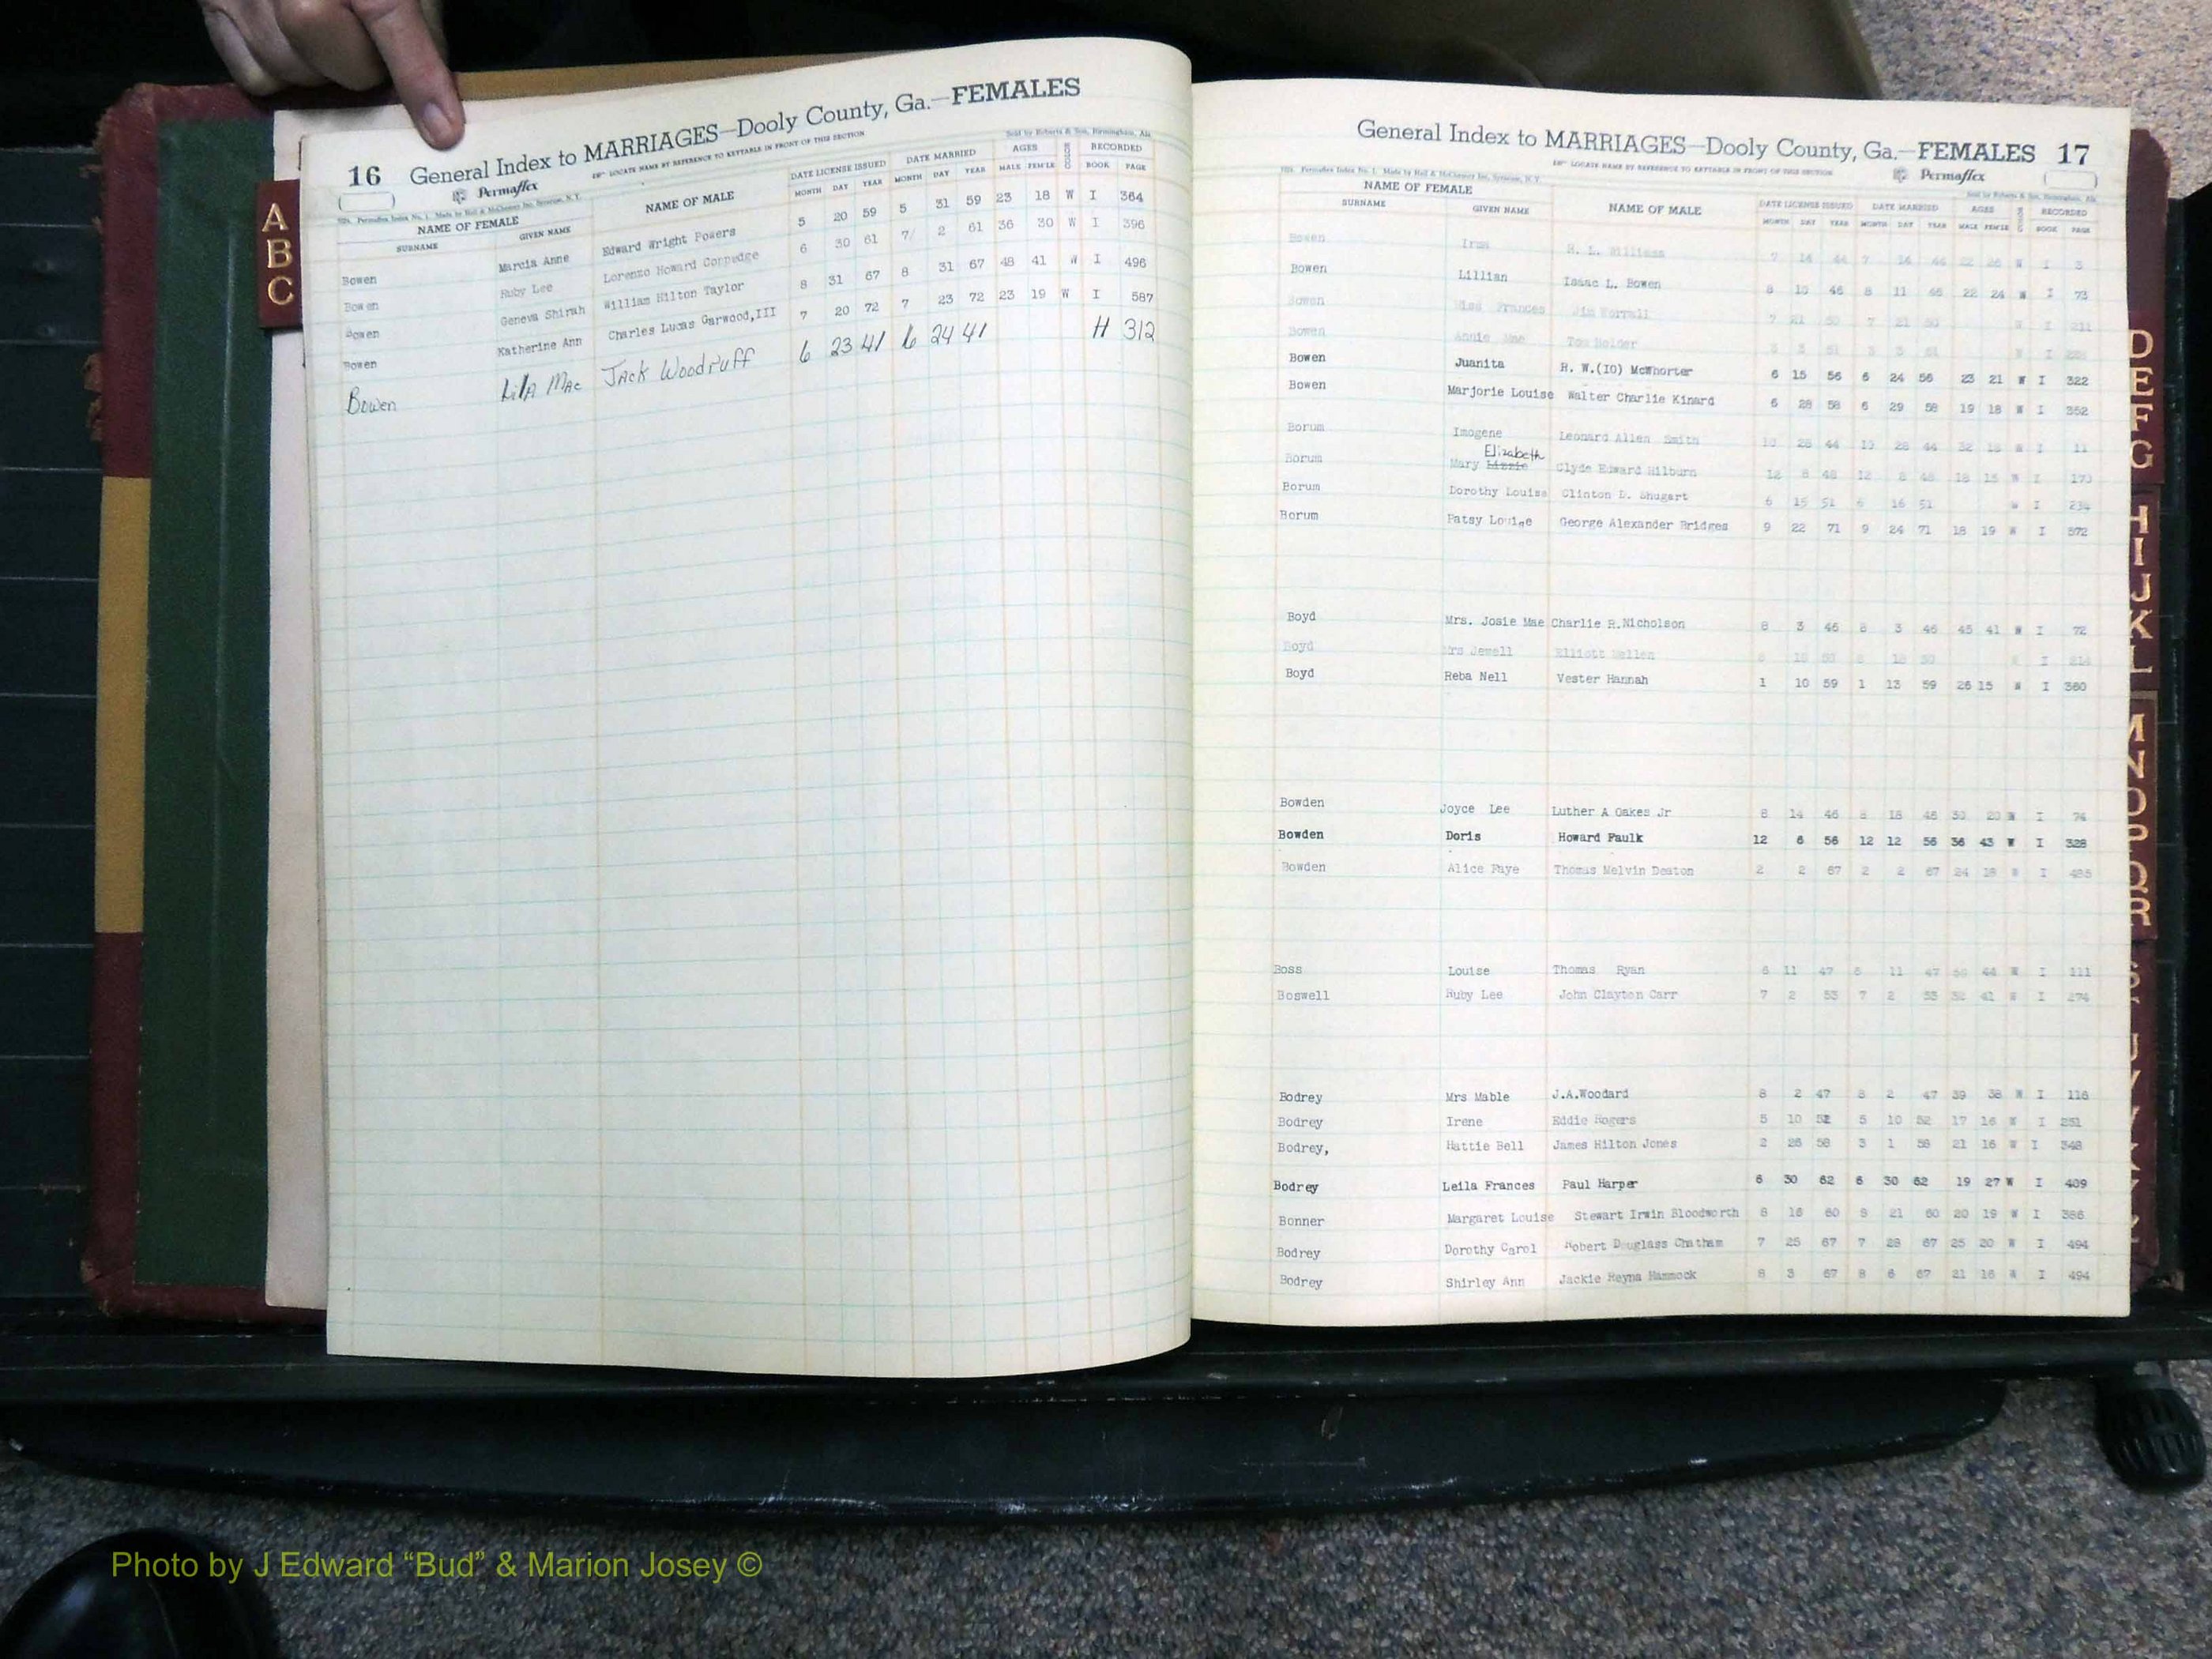 16 General Index to MARRIAGES—Dooly County, Ga.—FEMALES
Permaflex
LOCATE NAME BY REFERENCE TO KEYTABLE IN FRONT OF THIS SECTION
Sold by Roberts & Son, Birmingham, Ala.
NAME OF FEMALE NAME OF MALE DATE LICENSE ISSUED DATE MARRIED AGES RECORDED
SURNAME GIVEN NAME MONTH DAY YEAR MONTH DAY YEAR MALE FEM'LE BOOK PAGE
Bowen Marcia Anne Edward Wright Powers 5 20 59 5 31 59 23 18 W I 364
Bowen Ruby Lee Lorenzo Howard Coppedge 6 30 61 7/ 2 61 36 30 W I 396
Bowen Geneva Shirah William Hilton Taylor 8 31 67 8 31 67 48 41 W I 496
Bowen Katherine Ann Charles Lucas Garwood,III 7 20 72 7 23 72 23 19 W I 587
Bowen Lila Mae Jack Woodruff 6 23 41 6 24 41 H 312
A
B
C
General Index to MARRIAGES—Dooly County, Ga.—FEMALES 17
LOCATE NAME BY REFERENCE TO KEYTABLE IN FRONT OF THIS SECTION
Permaflex
NAME OF FEMALE NAME OF MALE DATE LICENSE ISSUED DATE MARRIED AGES RECORDED
SURNAME GIVEN NAME MONTH DAY YEAR MONTH DAY YEAR MALE FEM'LE BOOK PAGE
Bowen Irma R. L. Williams 7 14 44 7 16 44 W I 3
Bowen Lillian Isaac L. Bowen 8 10 46 8 11 46 22 24 W I 73
Bowen Miss Frances Jim Worrall 7 21 50 7 21 50 W I 211
Bowen Annie Mae Tom Holder 3 3 51 3 3 51 W I
Bowen Juanita R. W.(IO) McWhorter 6 15 56 6 24 56 23 21 W I 322
Bowen Marjorie Louise Walter Charlie Kinard 6 28 58 6 29 58 19 18 W I 352
Borum Imogene Leonard Allen Smith 10 28 44 10 28 44 32 18 W I 11
Borum Mary Lizzie Elizabeth Clyde Edward Hilburn 12 8 48 12 8 48 18 15 W I 173
Borum Dorothy Louise Clinton D. Shugart 6 15 51 6 16 51 W I 234
Borum Patsy Louise George Alexander Bridges 9 22 71 9 24 71 18 19 W I 572
Boyd Mrs. Josie Mae Charlie R.Nicholson 8 3 46 8 3 46 45 41 W I 72
Boyd Mrs Jewell Elliott Mellen 8 18 50 8 18 50 W I 214
Boyd Reba Nell Vester Hannah 1 10 59 1 13 59 26 15 W I 360
Bowden Joyce Lee Luther A Oakes Jr 8 14 46 8 18 46 30 20 W I 74
Bowden Doris Howard Faulk 12 6 56 12 12 56 36 43 W I 328
Bowden Alice Faye Thomas Melvin Deaton 2 2 67 2 2 67 24 18 W I 485
Boss Louise Thomas Ryan 6 11 47 6 11 47 44 W I 111
Boswell Ruby Lee John Clayton Carr 7 2 53 7 2 53 52 41 W I 274
Bodrey Mrs Mable J.A.Woodard 8 2 47 8 2 47 39 38 W I 116
Bodrey Irene Eddie Rogers 5 10 52 5 10 52 17 16 W I 251
Bodrey, Hattie Bell James Hilton Jones 2 26 58 3 1 58 21 16 W I 348
Bodrey Leila Frances Paul Harper 6 30 62 6 30 62 19 27 W I 409
Bonner Margaret Louise Stewart Irwin Bloodworth 8 16 60 8 21 60 20 19 W I 386
Bodrey Dorothy Carol Robert Douglass Chatham 7 25 67 7 28 67 25 20 W I 494
Bodrey Shirley Ann Jackie Reyna Hammock 8 3 67 8 6 67 21 16 W I 494
D
E
F
G
H
I
J
K
L
M
N
O
P
Q
R
S
Photo by J Edward “Bud” & Marion Josey ©